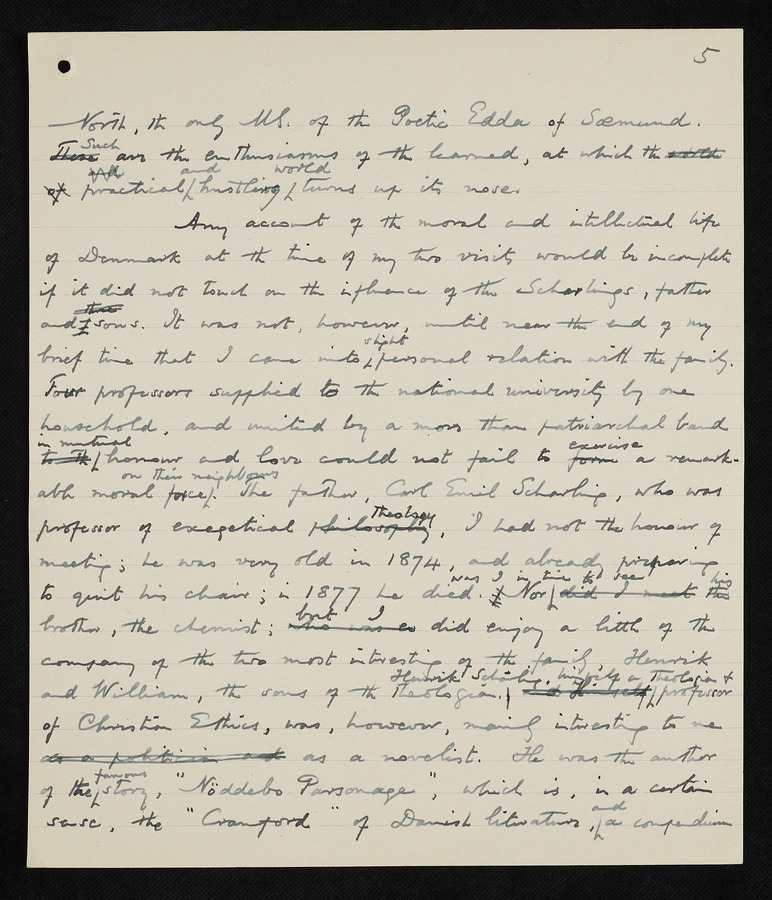 5
North, the only MS. of the Poetic Edda of Sæmund.
Such
These are the enthusiasms of the learned, at which the world
and world
of practical, hustling, turns up its nose.
Any account of the moral and intellectual life
of Denmark at the time of my two visits would be incomplete
if it did not touch on the influence of the Scharlings, father
and sons. It was not, however, until near the end of my
slight
brief time that I came into personal relation with the family.
Four professors supplied to the national university by one
household, and united by a more than patriarchal band
in mutual exercise
to the honour and love could not fail to form a remark-
on their neighbours
able moral force. The father, Carl Emil Scharling, who was
theology
professor of exegetical philosophy, I had not the honour of
meeting; he was very old in 1874, and already preparing
was I in time to see his
to quit his chair; in 1877 he died. Nor did I meet the
but I
brother, the chemist; who was did enjoy a little of the
company of the two most interesting of the family, Henrik
Henrik Scharling, himself a Theologian &
and William, the sons of the Theologian. professor
of Christian Ethics, was, however, mainly interesting to me
as a politician and as a novelist. He was the author
famous
of the story, "Nöddebo Parsonage", which is, in a certain
and
sense, the "Cranford" of Danish literature, a compendium